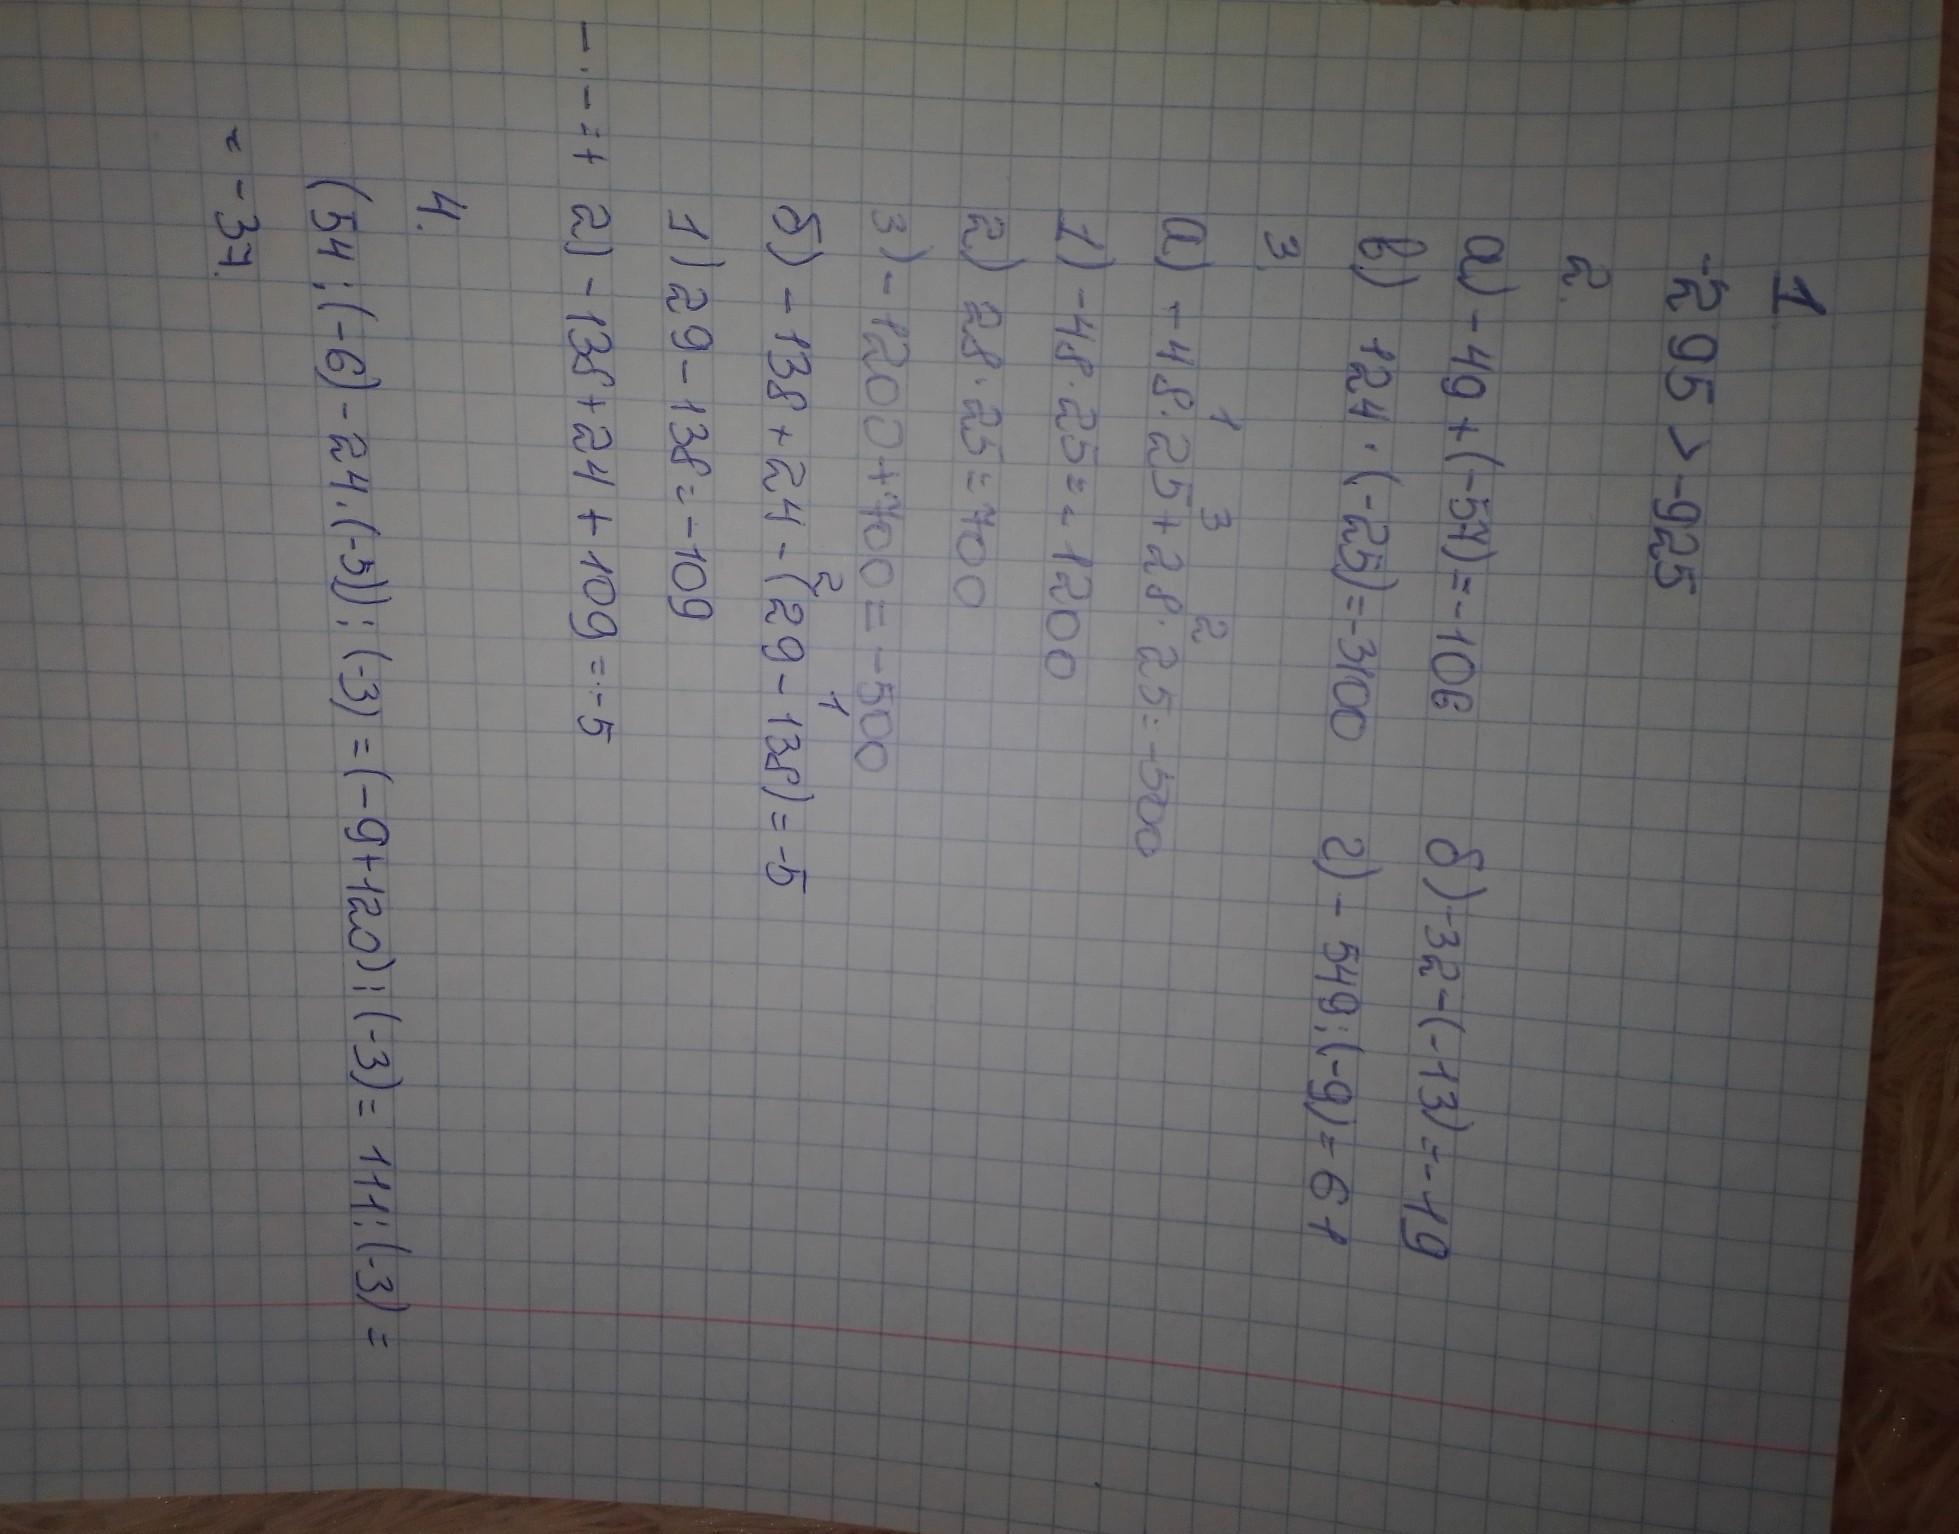 1.
-295 > -925
2.
а) -49 + (-57) = -106 б) -32 - (-13) = -19
в) 124 · (-25) = -3100 г) - 549 : (-9) = 61
3.
1 3 2
а) - 48 · 25 + 28 · 25 = -500
1) -48 · 25 = - 1200
2) 28 · 25 = 700
3) - 1200 + 700 = -500
2 1
б) - 138 + 24 - (29 - 138) = -5
1) 29 - 138 = -109
- · - = + 2) - 138 + 24 + 109 = -5
4.
(54 : (-6) - 24 · (-5)) : (-3) = (-9 + 120) : (-3) = 111 : (-3) =
= -37.